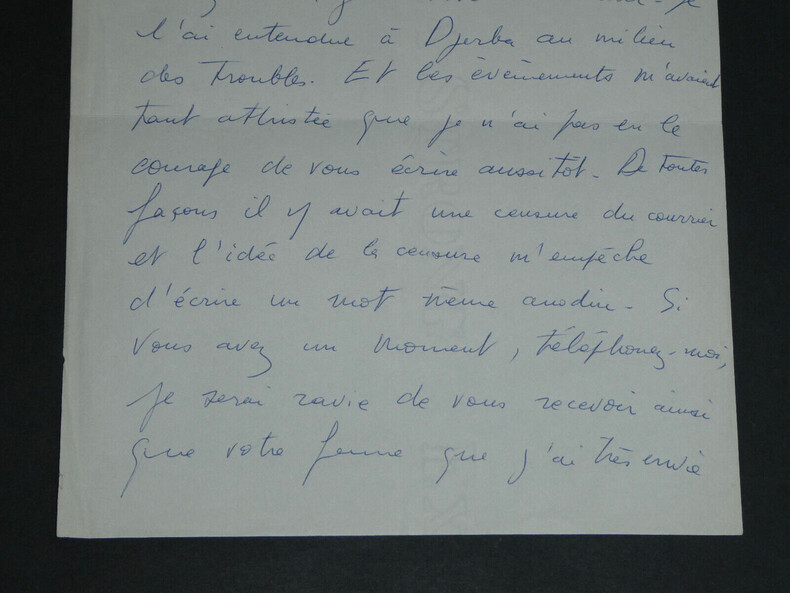 je
l'ai entendue à Djerba au milieu
des troubles. Et les évènements m'avaient
tant attristée que je n'ai pas eu le
courage de vous écrire aussitôt. De toutes
façons il y avait une censure du courrier
et l'idée de la censure m'empêche
d'écrire un mot même anodin. Si
vous avez un moment, téléphonez-moi,
je serai ravie de vous recevoir ainsi
que votre femme que j'ai très envie